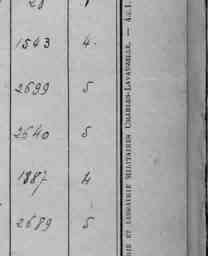 1543 4.
2699 5
2640 5
1887 4
2689 5
IE ET LIBRAIRIE MILITAIRES CHARLES-LAVAUZELLE. —